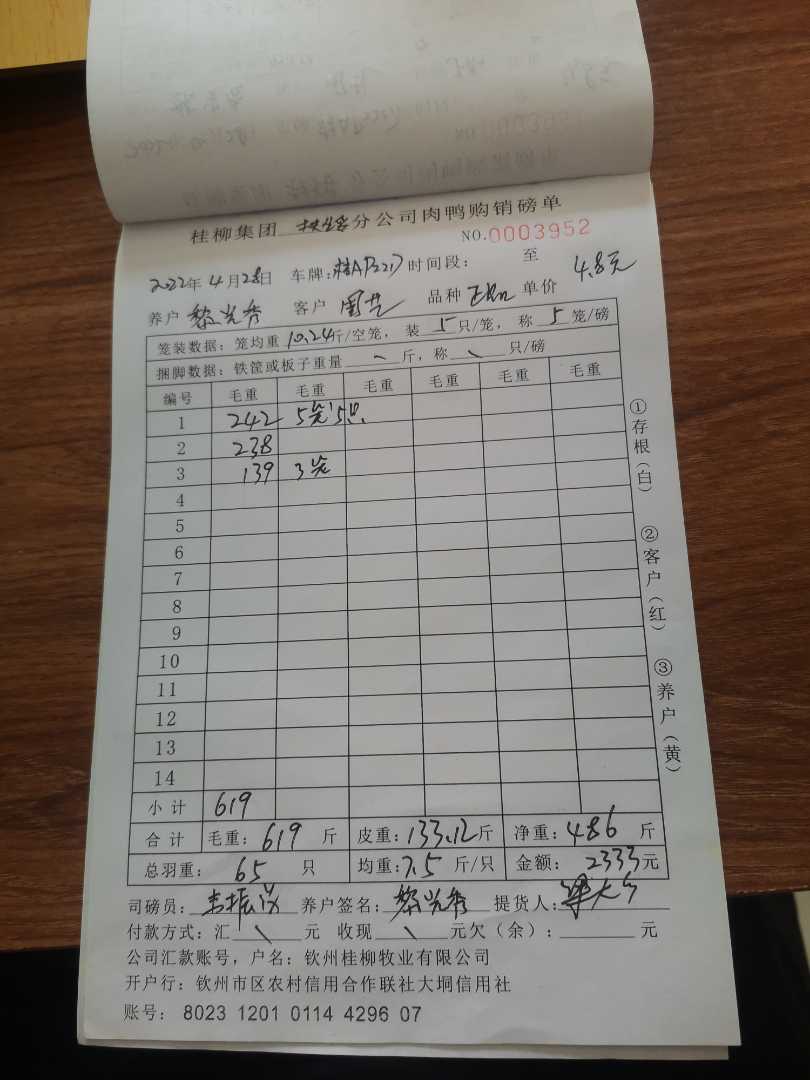 桂柳集团 分公司肉鸭购销磅单
NO.0003952
2022年4月28日 车牌: 时间段: 至
养户 黎光秀 客户 周艺 品种 单价 4.8元
笼装数据:笼均重10.24斤/空笼,装5只/笼,称5笼/磅
捆脚数据:铁筐或板子重量\斤,称\只/磅
编号 毛重 毛重 毛重 毛重 毛重 毛重
1 242 5笼 5只
2 238
3 139 3笼
4
5
6
7
8
9
10
11
12
13
14
小计 619
合计 毛重:619斤 皮重:133.12斤 净重:486斤
总羽重:65只 均重:7.5斤/只 金额:2333元
司磅员: 养户签名:黎光秀 提货人:
付款方式:汇\元 收现\元欠(余):元
公司汇款账号,户名:钦州桂柳牧业有限公司
开户行:钦州市区农村信用合作联社大垌信用社
账号:8023 1201 0114 4296 07
①存根(白)
②客户(红)
③养户(黄)